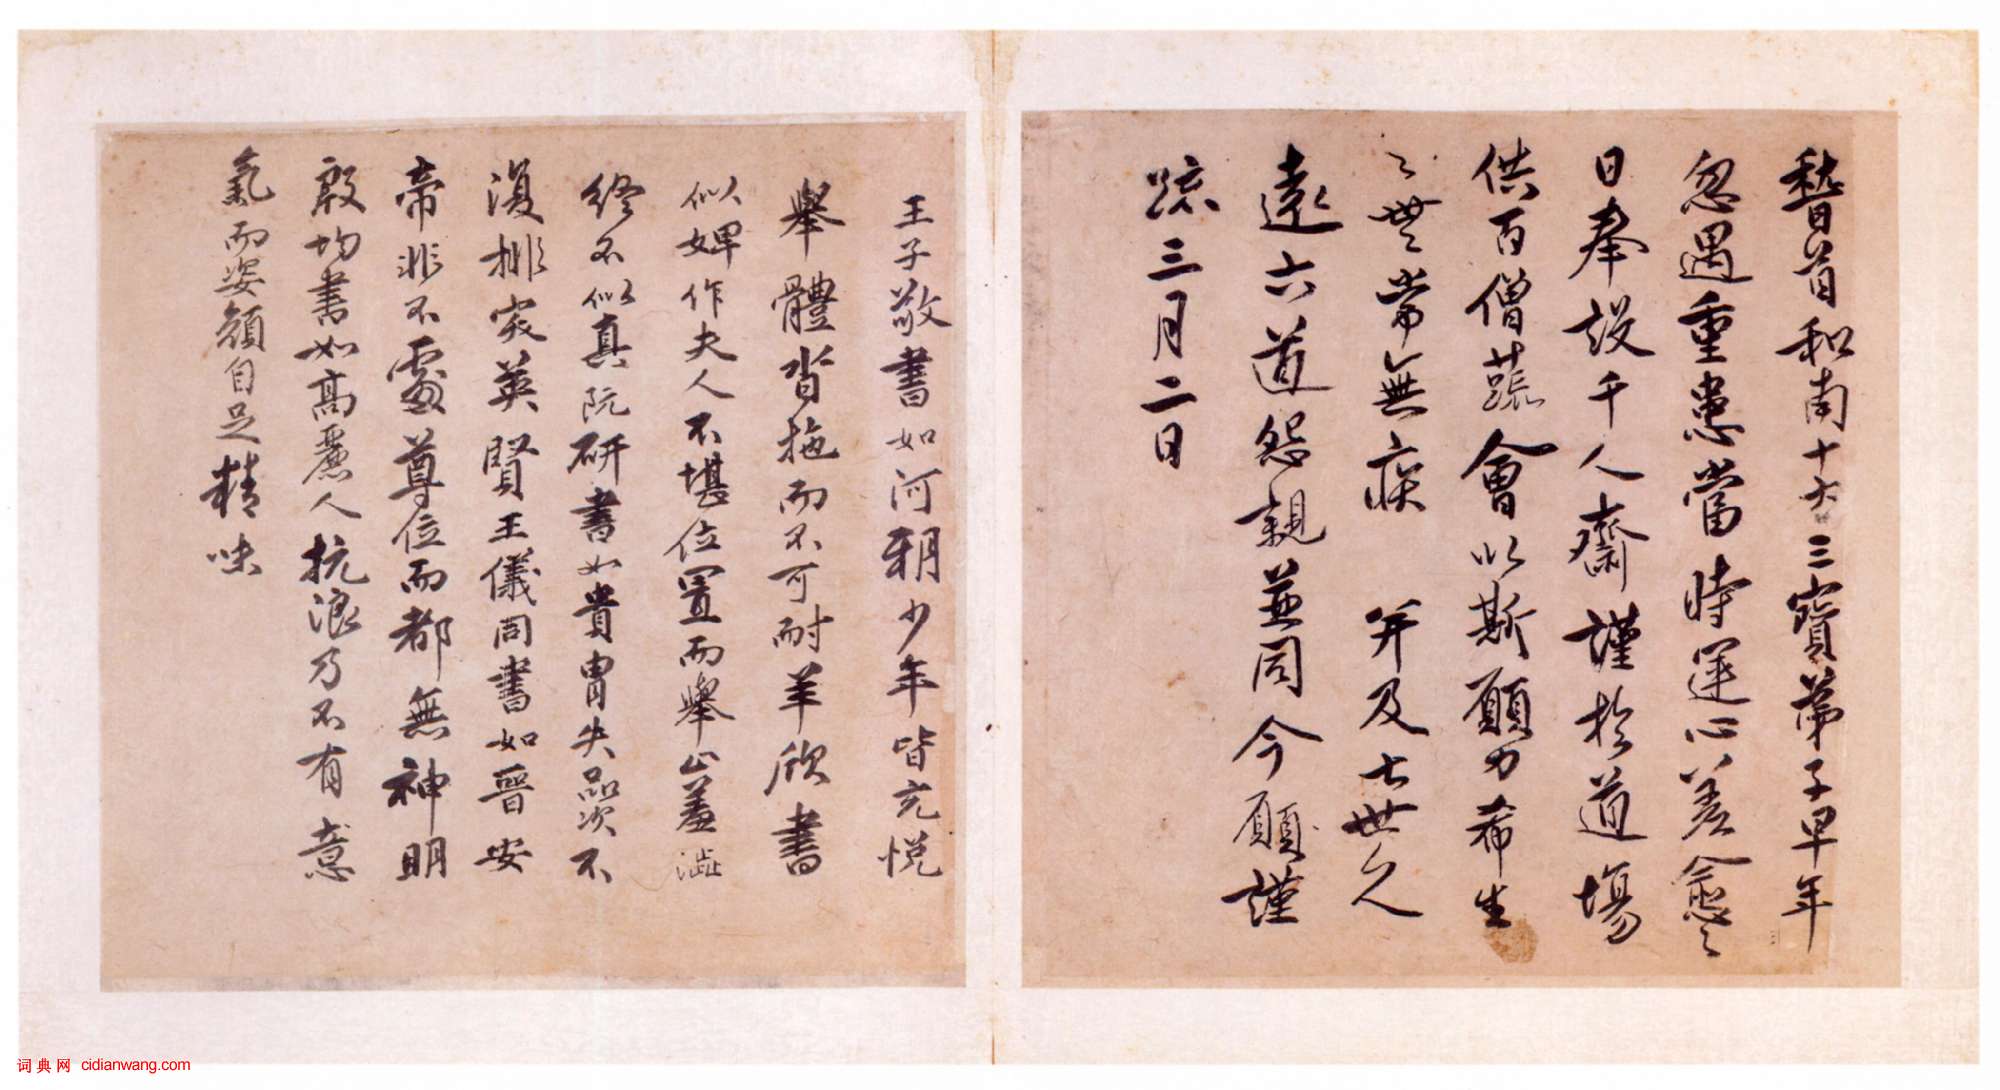 稽首和南十方三寶弟子早年
忽遇重患當時運心差愈之
日奉設千人齋謹於道場
供百僧蔬會以斯願力希生
〻世〻常無疾 并及七世久
遠六道怨親並同今願謹
疏三月二日
王子敬書如河朔少年皆充悅
舉體沓拖而不可耐羊欣書
似婢作夫人不堪位置而舉止羞澁
終不似真阮研書如貴胄失品次不
復排突英賢王儀同書如晉安
帝非不處尊位而都無神明
殷均書如高麗人抗浪乃不有意
氣而姿顏自足精味
词典网 cidianwang.com